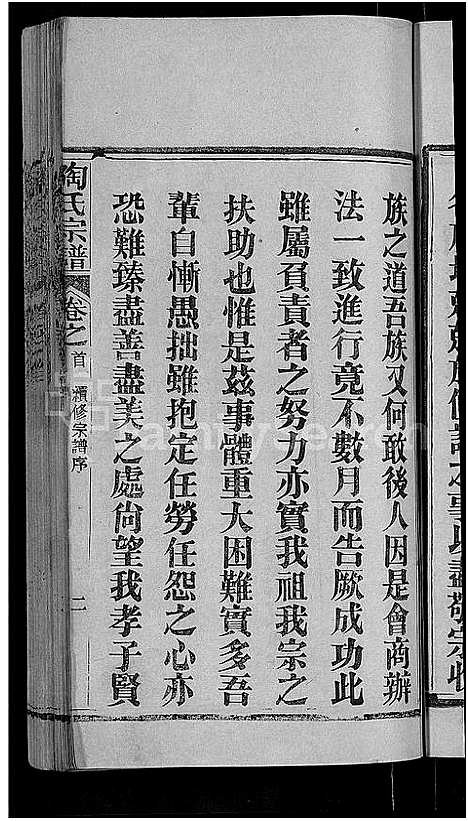 族之道吾族又何敢後人因是會商辦
法一致進行竟不數月而告厥成功此
雖屬負責者之努力亦實我祖我宗之
扶助也惟是茲事體重大困難實多吾
輩自慚愚拙雖抱定任勞任怨之心亦
恐難臻盡善盡美之處尙望我孝子賢
陶氏宗譜 卷之首 續修宗譜序 二